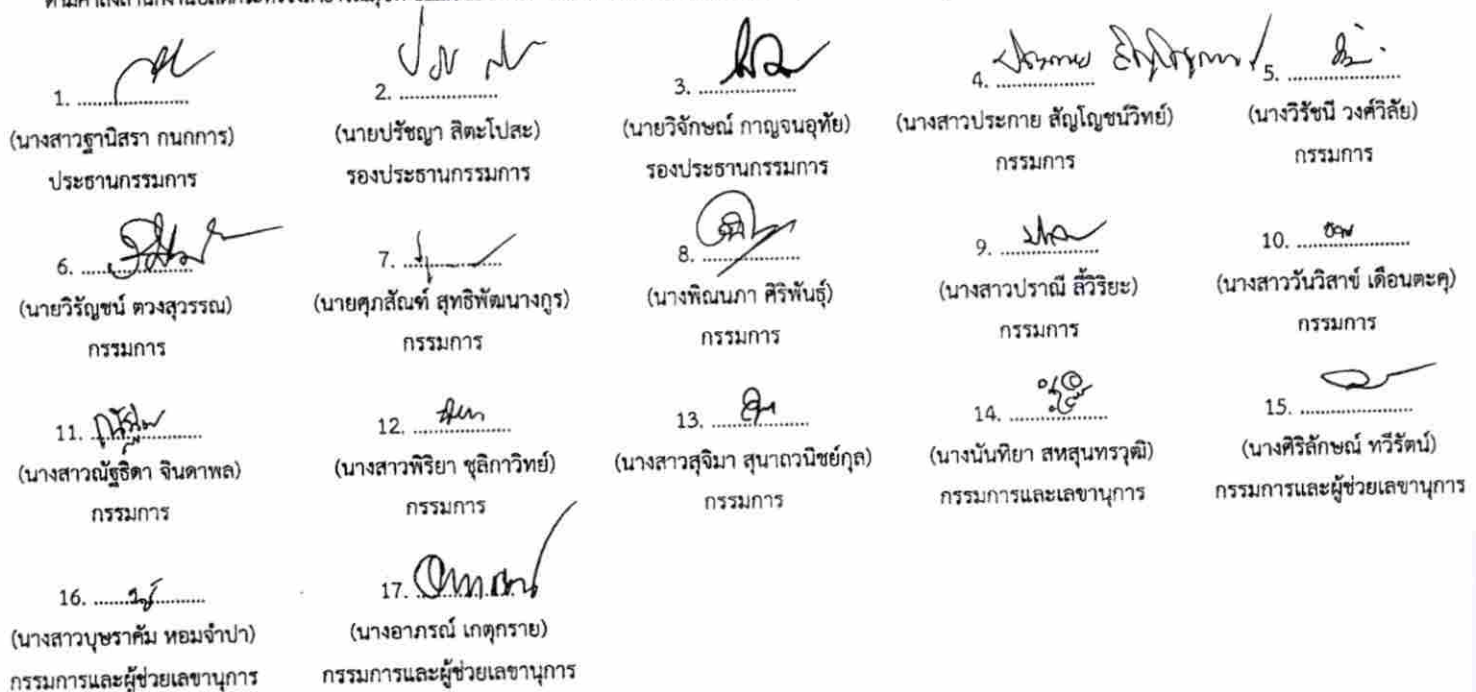 1. ....................
(นางสาวฐานิสรา กนกการ)
ประธานกรรมการ
2. ....................
(นายปรัชญา สิตะโปสะ)
รองประธานกรรมการ
3. ....................
(นายวิจักษณ์ กาญจนอุทัย)
รองประธานกรรมการ
4. ....................
(นางสาวประกาย สัญโญชน์วิทย์)
กรรมการ
5. ....................
(นางวิรัชนี วงศ์วิลัย)
กรรมการ
6. ....................
(นายวิรัญชน์ ตวงสุวรรณ)
กรรมการ
7. ....................
(นายศุภสัณฑ์ สุทธิพัฒนางกูร)
กรรมการ
8. ....................
(นางพิณนภา ศิริพันธุ์)
กรรมการ
9. ....................
(นางสาวปราณี ลี้วิริยะ)
กรรมการ
10. ....................
(นางสาววันวิสาข์ เดือนตะคุ)
กรรมการ
11. ....................
(นางสาวณัฐธิดา จินดาพล)
กรรมการ
12. ....................
(นางสาวพิริยา ชุลิกาวิทย์)
กรรมการ
13. ....................
(นางสาวสุจิมา สุนาถวนิชย์กุล)
กรรมการ
14. ....................
(นางนันทิยา สหสุนทรวุฒิ)
กรรมการและเลขานุการ
15. ....................
(นางศิริลักษณ์ ทวีรัตน์)
กรรมการและผู้ช่วยเลขานุการ
16. ....................
(นางสาวบุษราคัม หอมจำปา)
กรรมการและผู้ช่วยเลขานุการ
17. ....................
(นางอาภรณ์ เกตุกราย)
กรรมการและผู้ช่วยเลขานุการ